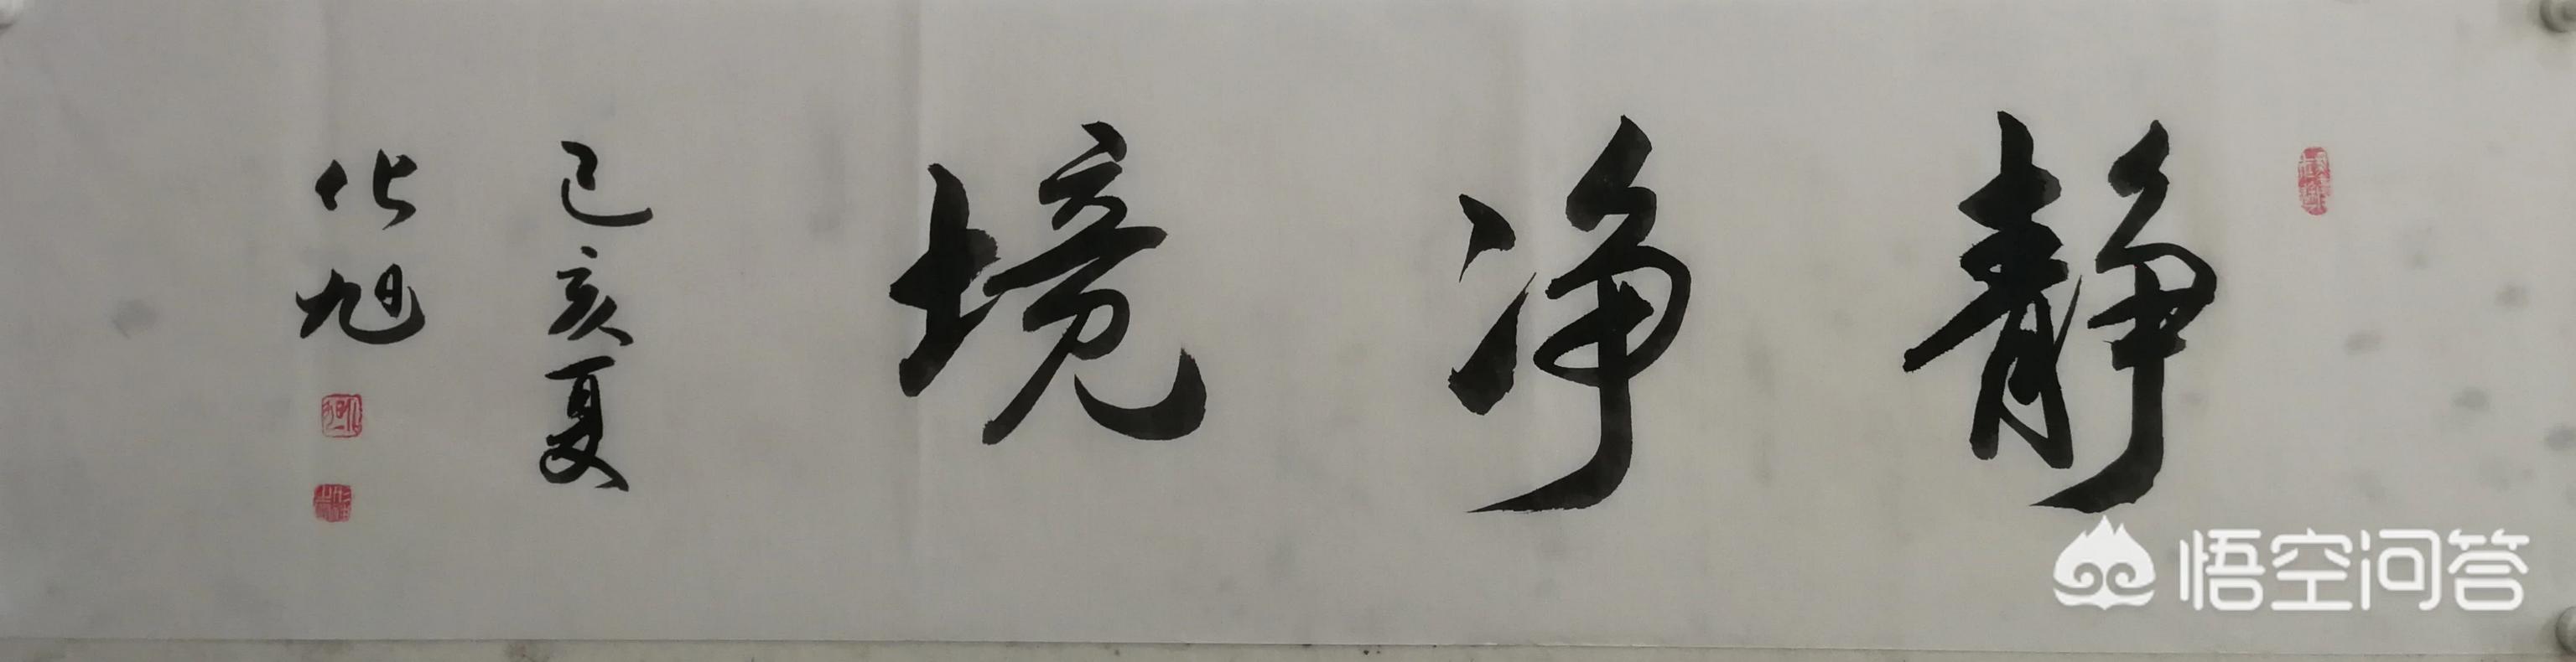 静净境
己亥夏
化旭
悟空问答